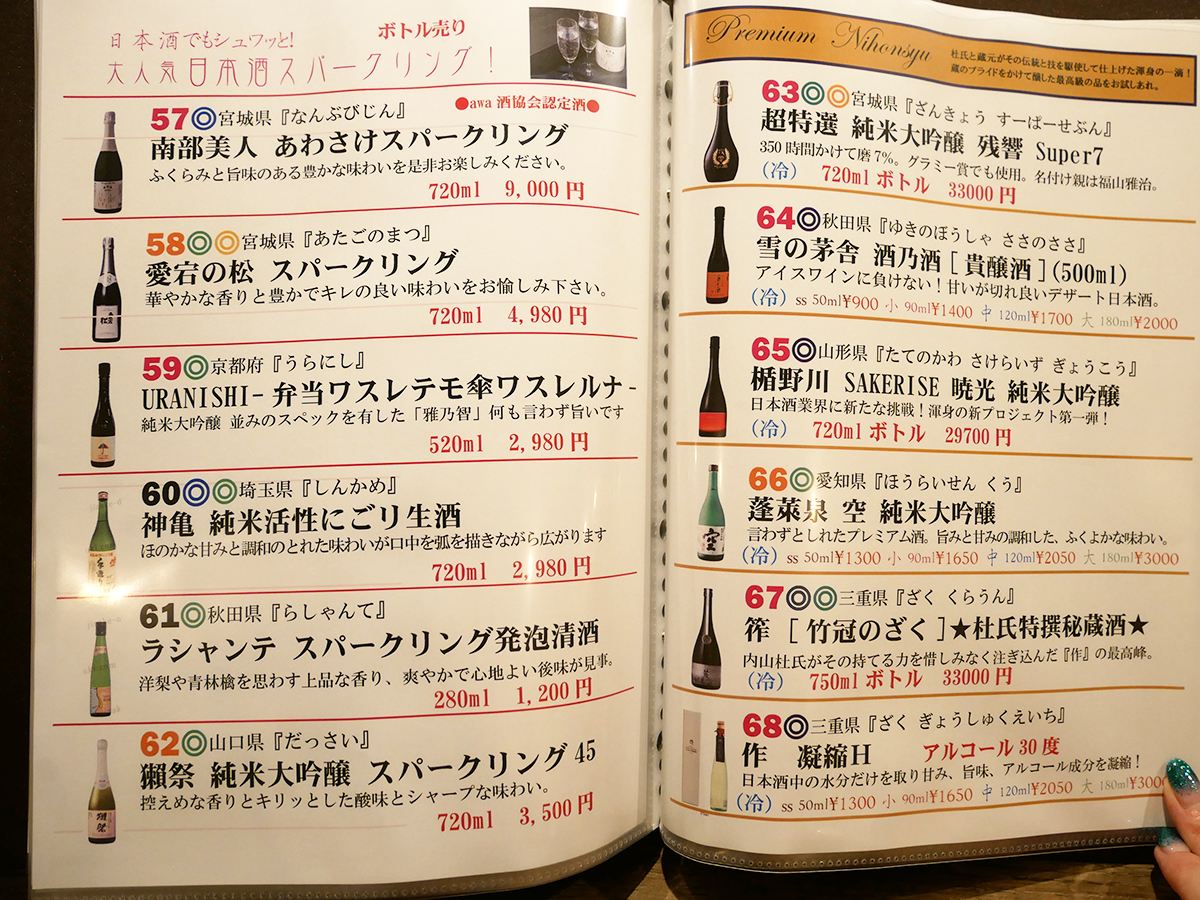 日本酒でもシュワッと!
ボトル売り
大人気日本酒スパークリング!
●awa 酒協会認定酒●
57◎宮城県『なんぶびじん』
南部美人 あわさけスパークリング
ふくらみと旨味のある豊かな味わいを是非お楽しみください。
720ml 9,000円
58◎◎宮城県『あたごのまつ』
愛宕の松 スパークリング
華やかな香りと豊かでキレの良い味わいをお愉しみ下さい。
720ml 4,980円
59◎京都府『うらにし』
URANISHI-弁当ワスレテモ傘ワスレルナ-
純米大吟醸 並みのスペックを有した「雅乃智」何も言わず旨いです
520ml 2,980円
60◎◎埼玉県『しんかめ』
神亀 純米活性にごり生酒
ほのかな甘みと調和のとれた味わいが口中を弧を描きながら広がります
720ml 2,980円
61◎秋田県『らしゃんて』
ラシャンテ スパークリング発泡清酒
洋梨や青林檎を思わす上品な香り、爽やかで心地よい後味が見事。
280ml 1,200円
62◎山口県『だっさい』
獺祭 純米大吟醸 スパークリング45
控えめな香りとキリッとした酸味とシャープな味わい。
720ml 3,500円
Premium Nihonsyu
杜氏と蔵元がその伝統と技を駆使して仕上げた渾身の一滴!
蔵のプライドをかけて醸した最高級の品をお試しあれ。
63◎◎宮城県『ざんきょう すーぱーせぶん』
超特選 純米大吟醸 残響 Super7
350時間かけて磨7%。グラミー賞でも使用。名付け親は福山雅治。
(冷) 720mlボトル 33000円
64◎秋田県『ゆきのぼうしゃ ささのささ』
雪の茅舎 酒乃酒[貴醸酒](500ml)
アイスワインに負けない!甘いが切れ良いデザート日本酒。
(冷) ss 50ml¥900 小 90ml¥1400 中 120ml¥1700 大 180ml¥2000
65◎山形県『たてのかわ さけらいず ぎょうこう』
楯野川 SAKERISE 暁光 純米大吟醸
日本酒業界に新たな挑戦!渾身の新プロジェクト第一弾!
(冷) 720mlボトル 29700円
66◎愛知県『ほうらいせん くう』
蓬莱泉 空 純米大吟醸
言わずとしれたプレミアム酒。旨みと甘みの調和した、ふくよかな味わい。
(冷) ss 50ml¥1300 小 90ml¥1650 中 120ml¥2050 大 180ml¥3000
67◎◎三重県『ざく くらうん』
筰 [竹冠のざく]★杜氏特撰秘蔵酒★
内山杜氏がその持てる力を惜しみなく注ぎ込んだ『作』の最高峰。
(冷) 750mlボトル 33000円
68◎三重県『ざく ぎょうしゅくえいち』
作 凝縮H アルコール30度
日本酒中の水分だけを取り甘み、旨味、アルコール成分を凝縮!
(冷) ss 50ml¥1300 小 90ml¥1650 中 120ml¥2050 大 180ml¥3000